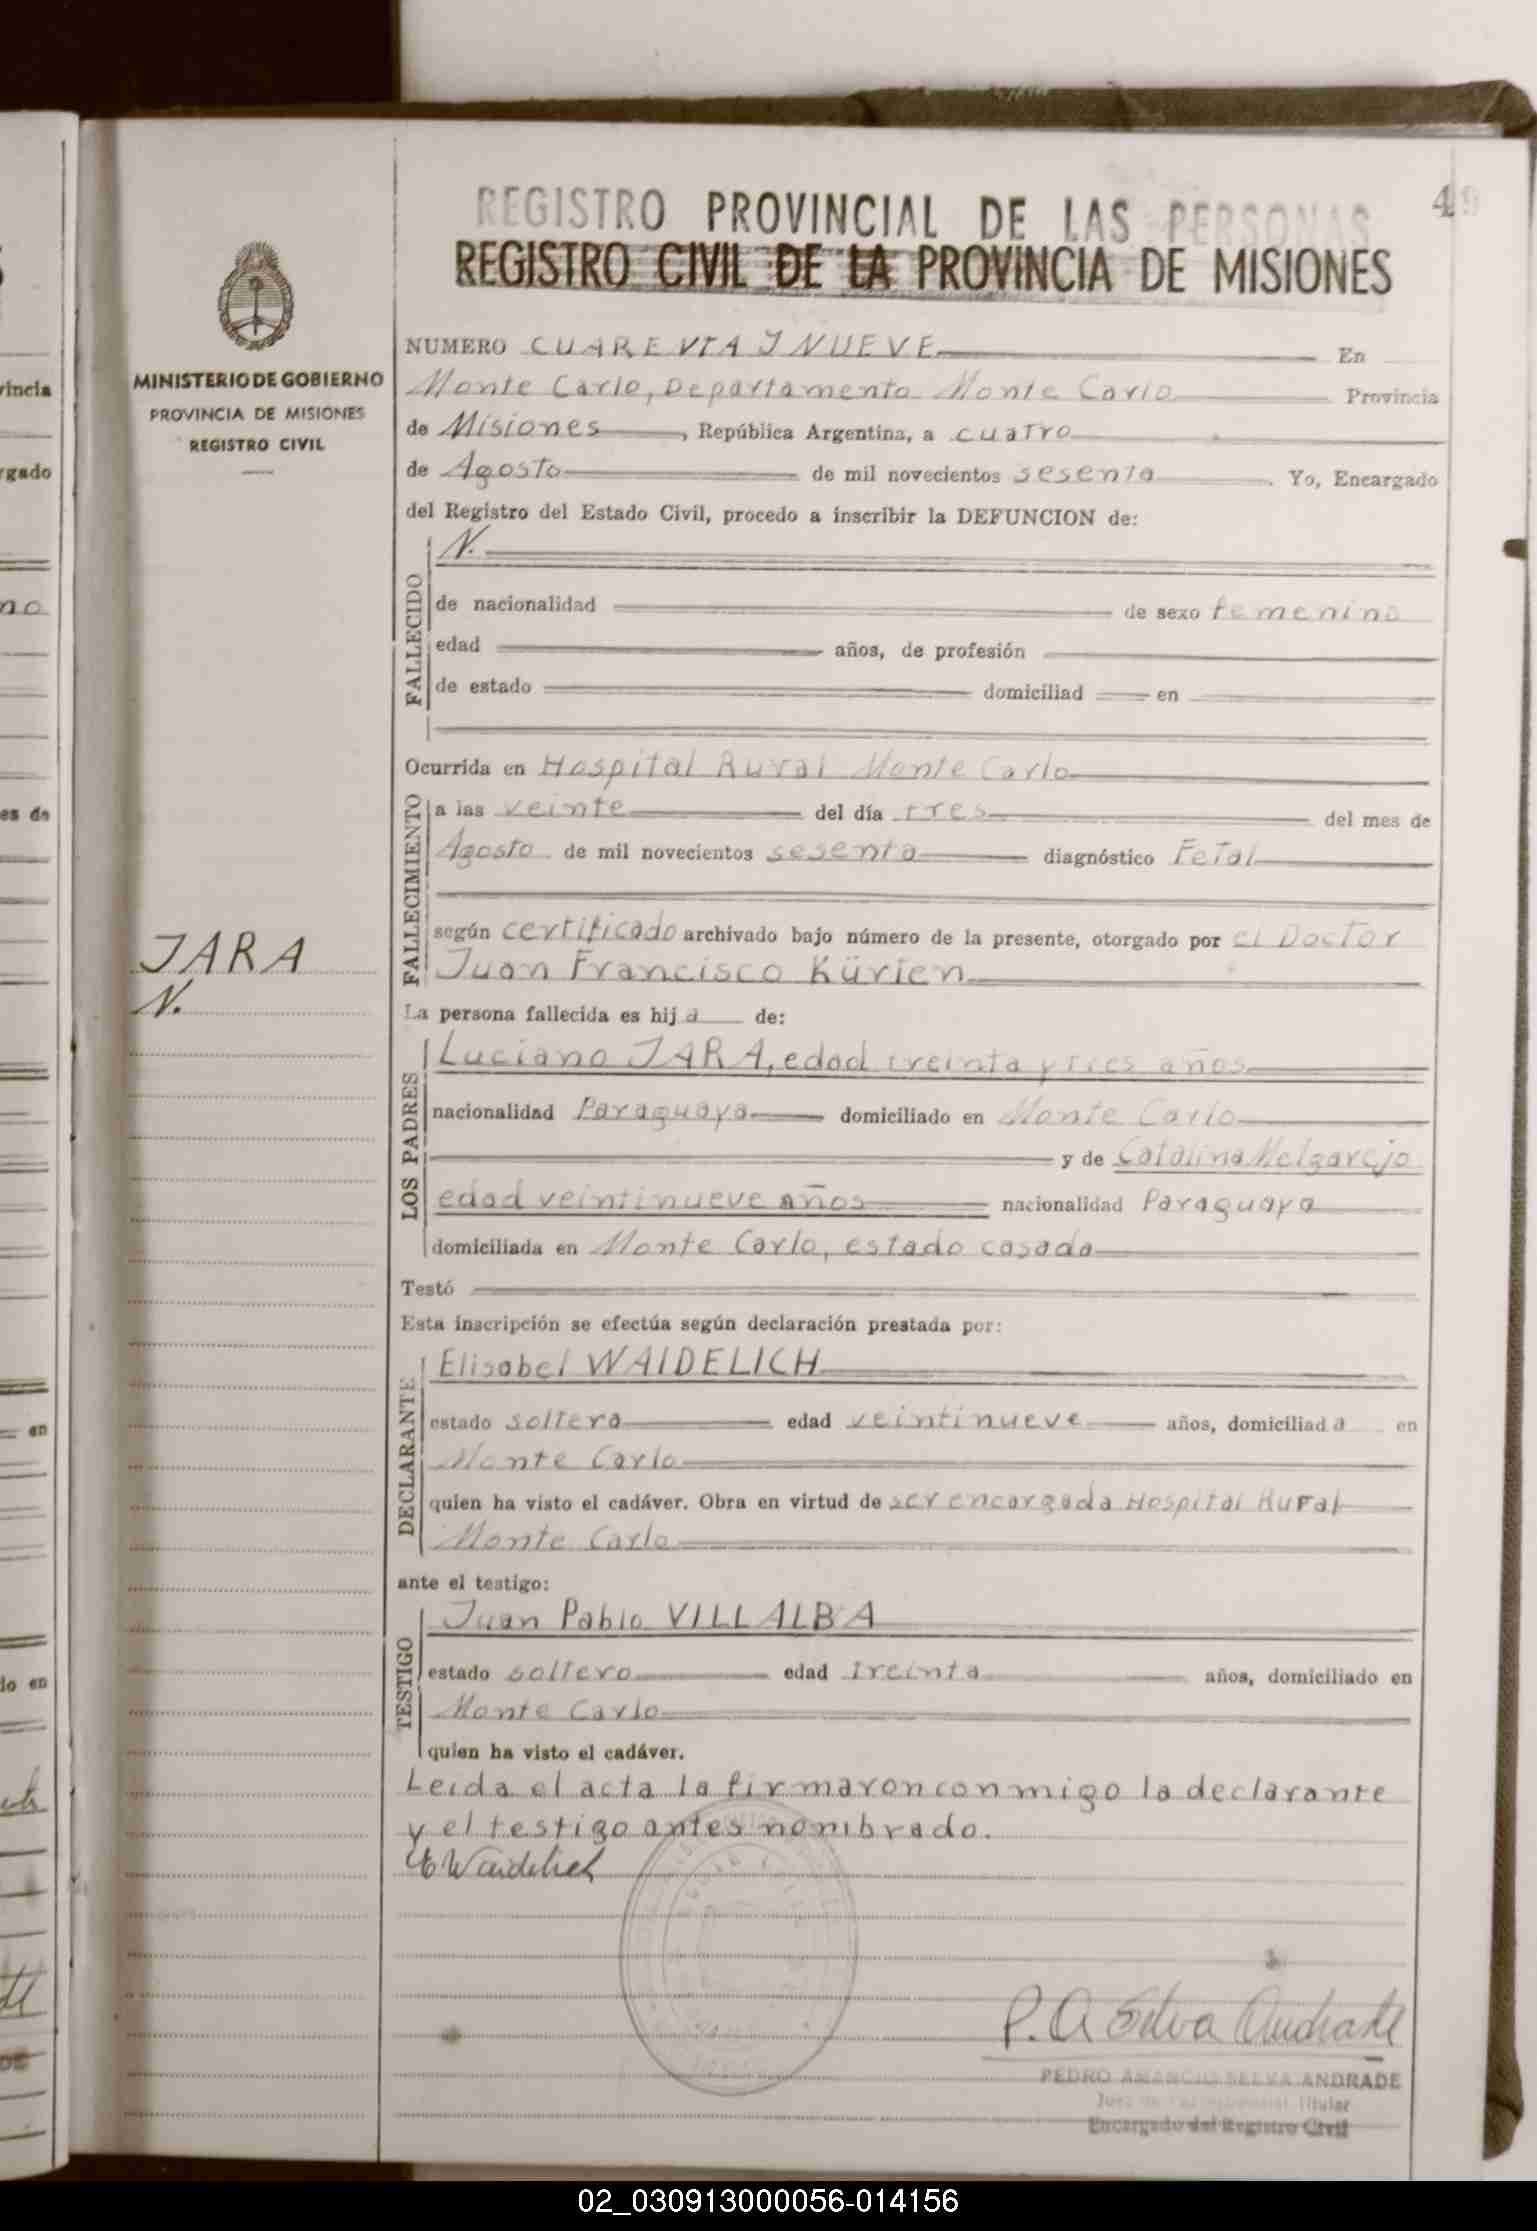 REGISTRO PROVINCIAL DE LAS PERSONAS
49
REGISTRO CIVIL DE LA PROVINCIA DE MISIONES
MINISTERIO DE GOBIERNO
PROVINCIA DE MISIONES
REGISTRO CIVIL
NUMERO CUARENTA Y NUEVE En
Monte Carlo, Departamento Monte Carlo Provincia
de Misiones, República Argentina, a cuatro
de Agosto de mil novecientos sesenta. Yo, Encargado
del Registro del Estado Civil, procedo a inscribir la DEFUNCION de:
FALLECIDO
N.
de nacionalidad de sexo femenino
edad años, de profesión
de estado domiciliad en
Ocurrida en Hospital Rural Monte Carlo
FALLECIMIENTO
a las veinte del día tres del mes de
Agosto de mil novecientos sesenta diagnóstico Fetal
según certificado archivado bajo número de la presente, otorgado por el Doctor
Juan Francisco Kürien
JARA
N.
La persona fallecida es hija de:
LOS PADRES
Luciano JARA, edad treinta y tres años
nacionalidad Paraguaya domiciliado en Monte Carlo
y de Catalina Melgarejo
edad veintinueve años nacionalidad Paraguaya
domiciliada en Monte Carlo, estado casada
Testó
Esta inscripción se efectúa según declaración prestada por:
DECLARANTE
Elisabel WAIDELICH
estado soltera edad veintinueve años, domiciliada en
Monte Carlo
quien ha visto el cadáver. Obra en virtud de ser encargada Hospital Rural
Monte Carlo
ante el testigo:
TESTIGO
Juan Pablo VILLALBA
estado soltero edad treinta años, domiciliado en
Monte Carlo
quien ha visto el cadáver.
Leída el acta la firmaron conmigo la declarante
y el testigo antes nombrado.
E Waidelich
P. A Silva Andrade
PEDRO AMANCIO SELVA ANDRADE
Juez de Titular
Encargado del Registro Civil
02_030913000056-014156